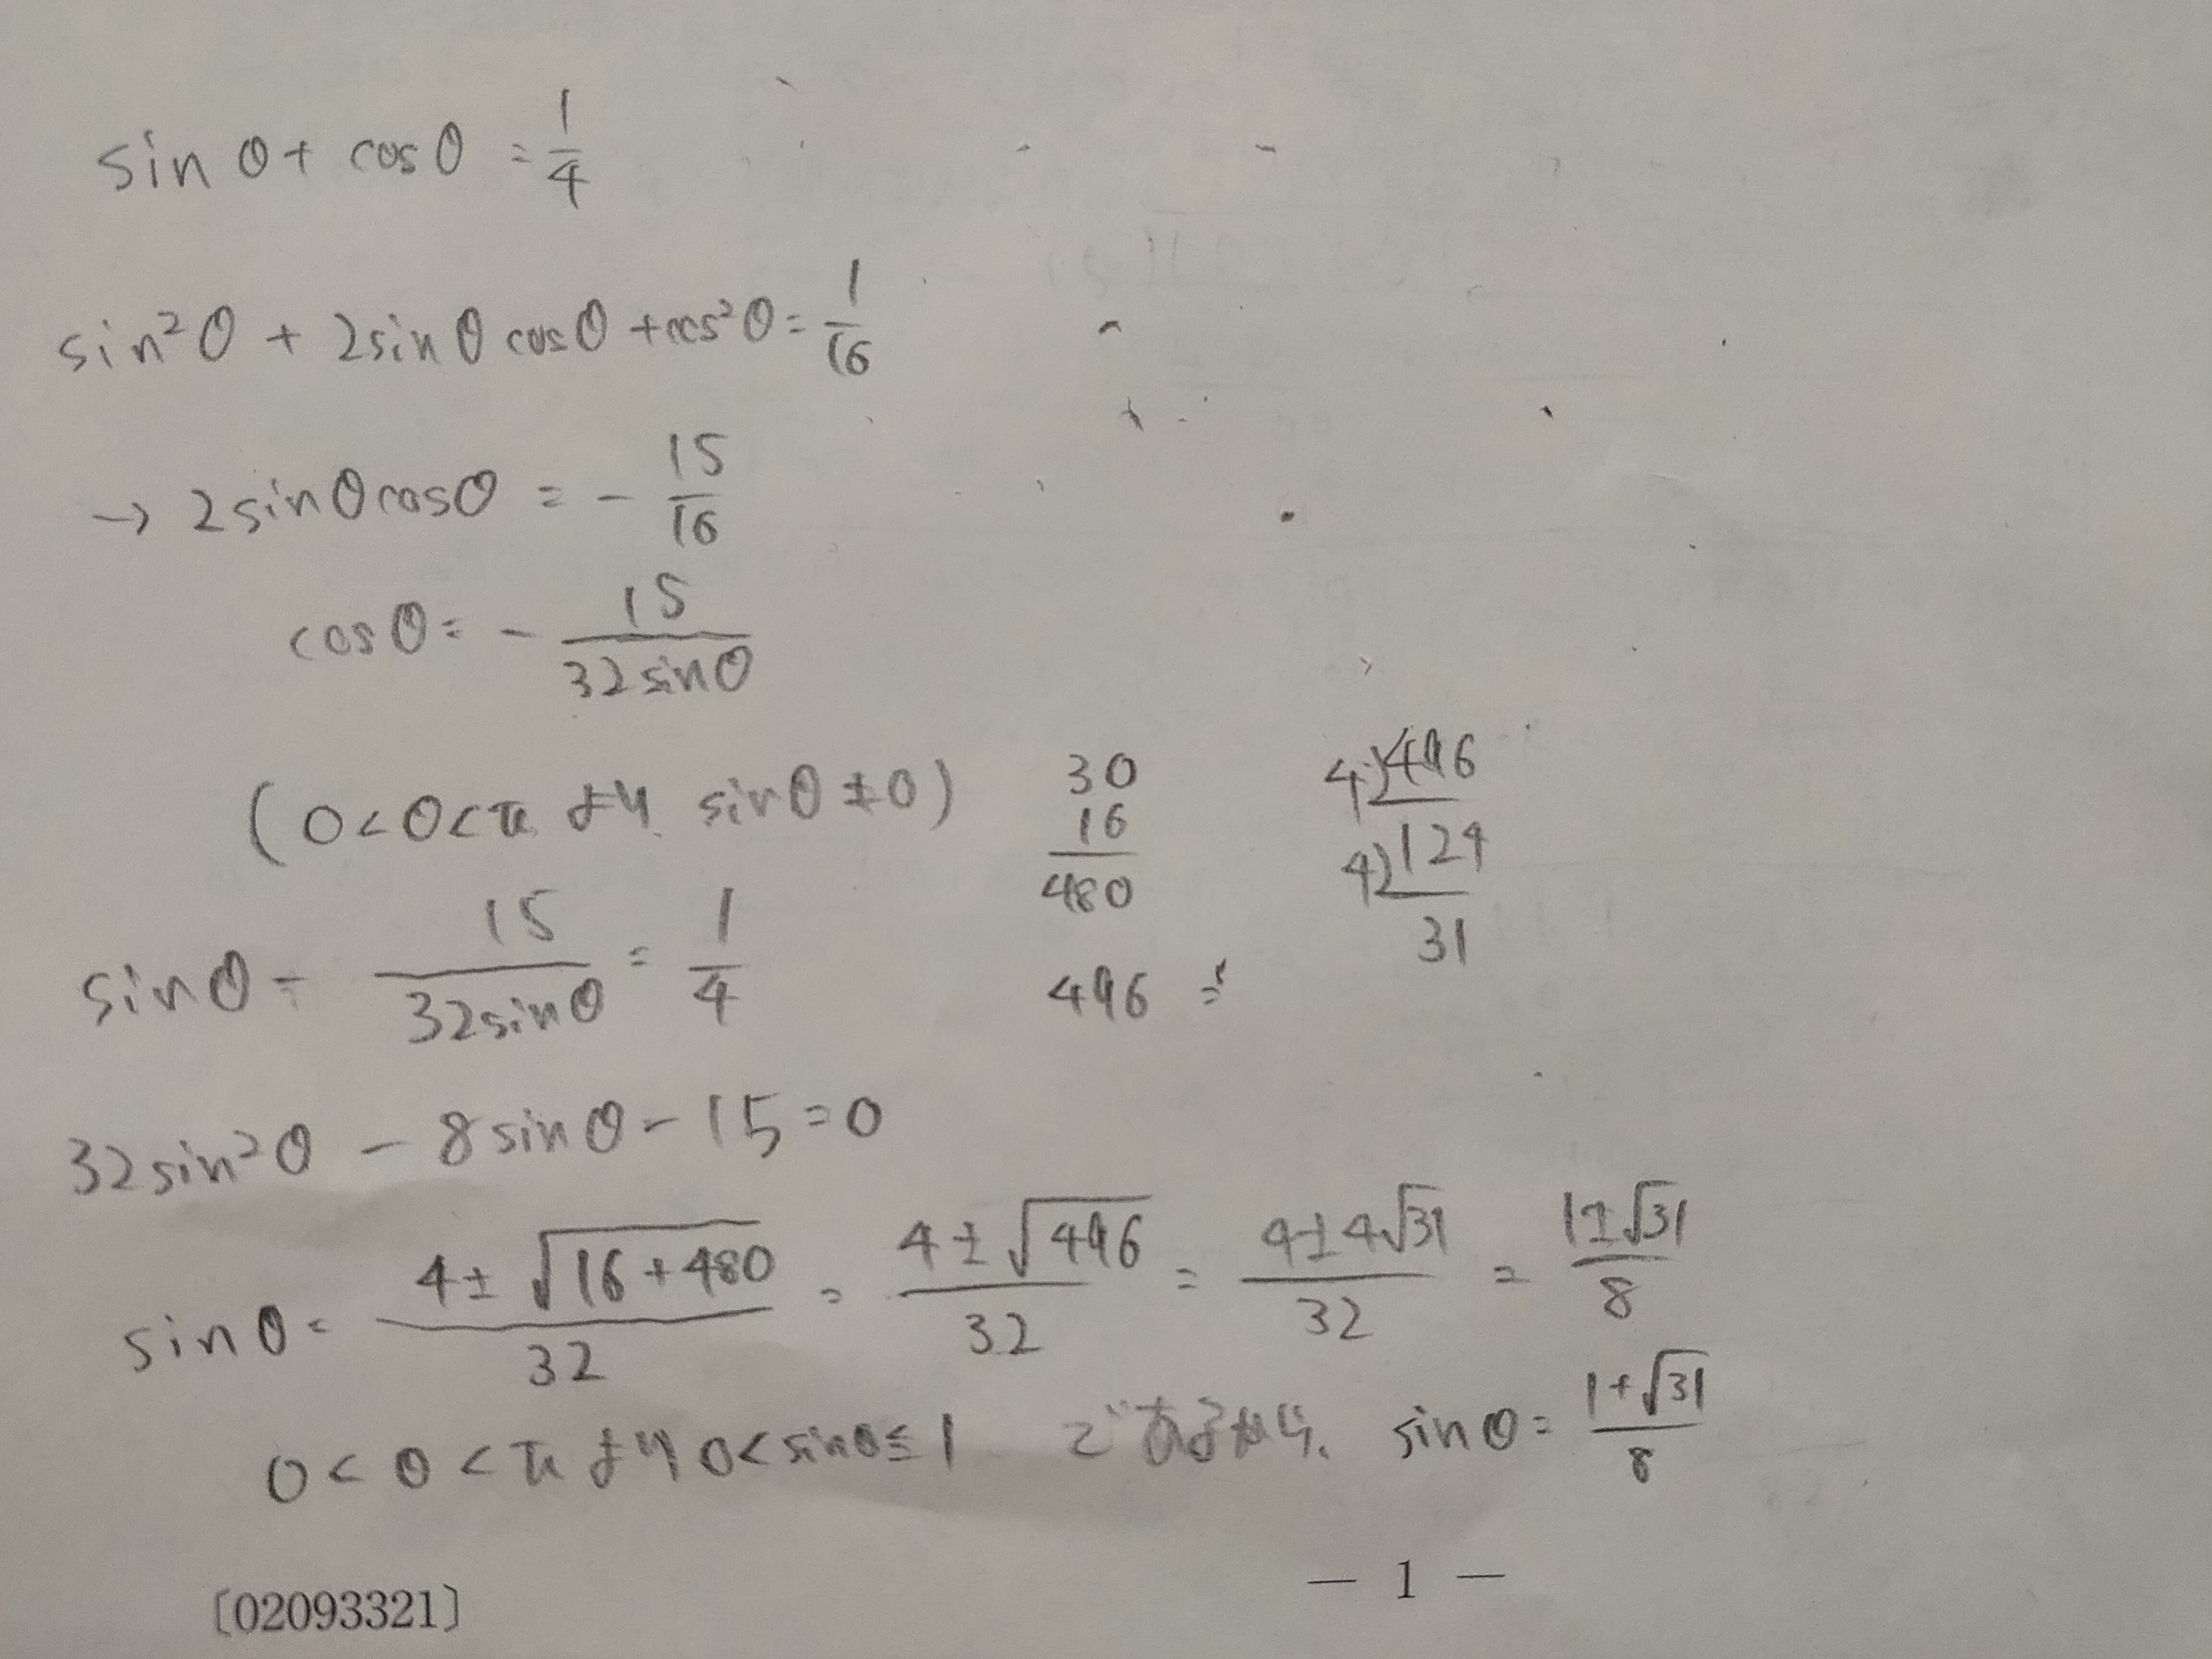 sin θ + cos θ = 1/4
sin²θ + 2sin θ cos θ + cos²θ = 1/16
→ 2sinθcosθ = - 15/16
cosθ = - 15/32sinθ
(0<θ<π より sinθ≠0)
30
16
480
496 =
4)496
4)124
31
sinθ - 15/32sinθ = 1/4
32sin²θ - 8sinθ - 15 = 0
sinθ = 4±√16+480/32 = 4±√496/32 = 4±4√31/32 = 1±√31/8
0<θ<π より 0<sinθ≦1 であるから、 sinθ = 1+√31/8
— 1 —
〔02093321〕